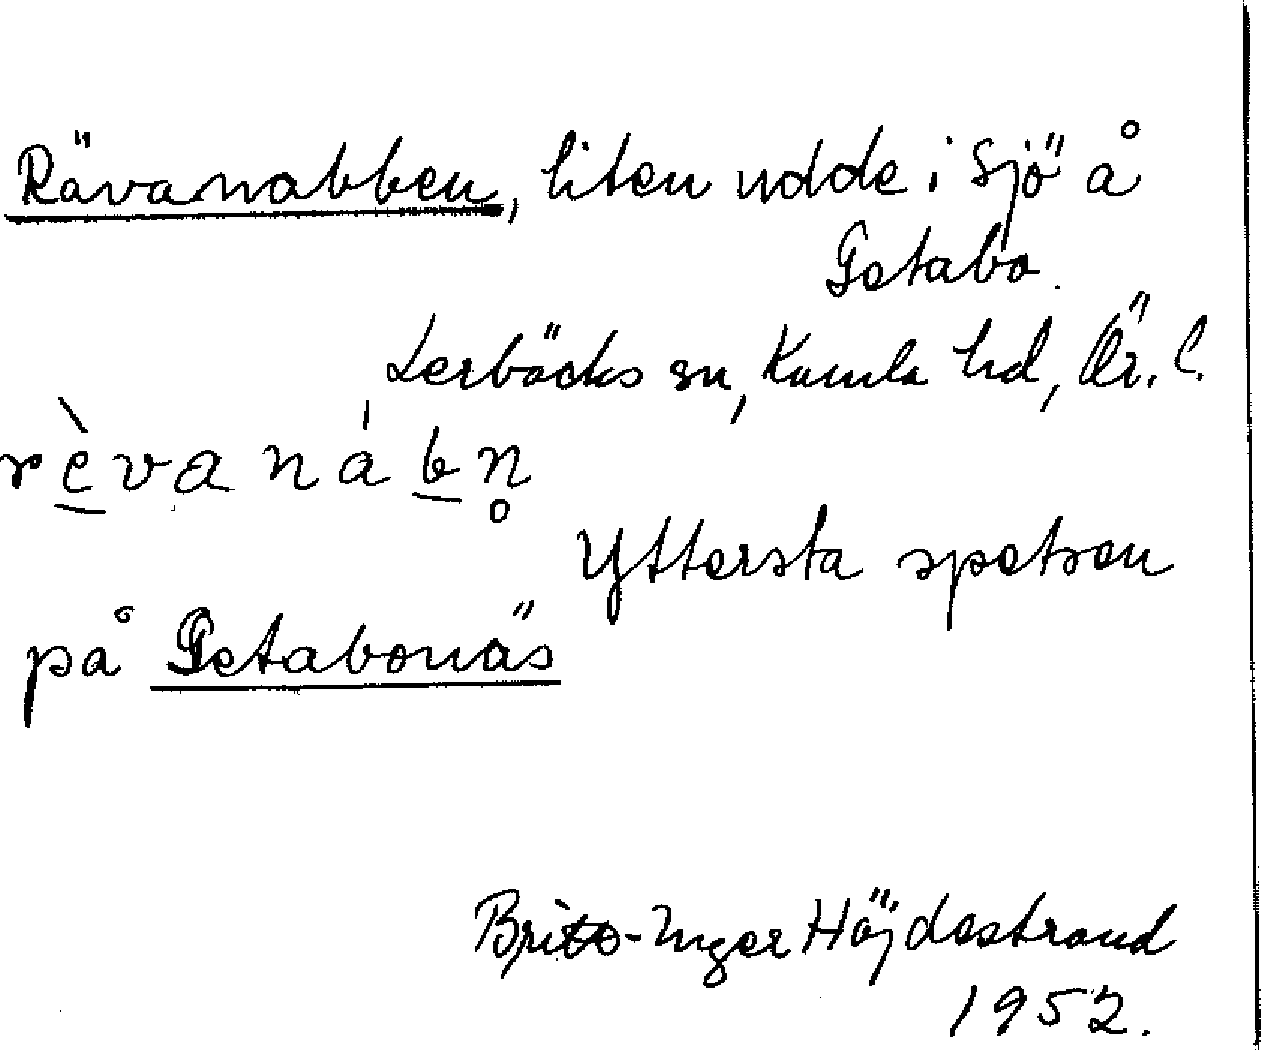 Rävanabben, liten udde i sjö å
Getabo.
Lerbäcks sn, Kumla hd, Ör. l.
rὲvanábn̥
Yttersta spetsen
på Getabonäs
Britt-Inger Höjdestrand
1952.